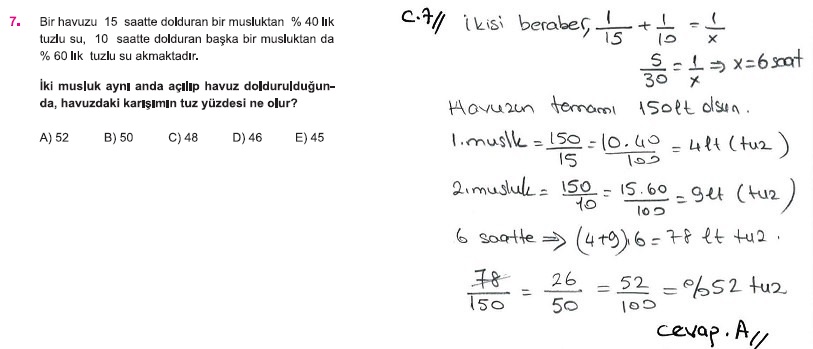 7. Bir havuzu 15 saatte dolduran bir musluktan % 40 lık
tuzlu su, 10 saatte dolduran başka bir musluktan da
% 60 lık tuzlu su akmaktadır.
İki musluk aynı anda açılıp havuz doldurulduğun-
da, havuzdaki karışımın tuz yüzdesi ne olur?
A) 52 B) 50 C) 48 D) 46 E) 45
C.7// ikisi beraber, 1/15 + 1/10 = 1/x
5/30 = 1/x ⇒ x=6 saat
Havuzun tamamı 150lt olsun.
1.muslk = 150/15 = 10.40/100 = 4lt (tuz)
2.musluk = 150/10 = 15.60/100 = 9lt (tuz)
6 saatte ⇒ (4+9).6 = 78 lt tuz.
78/150 = 26/50 = 52/100 = %52 tuz
cevap.A//